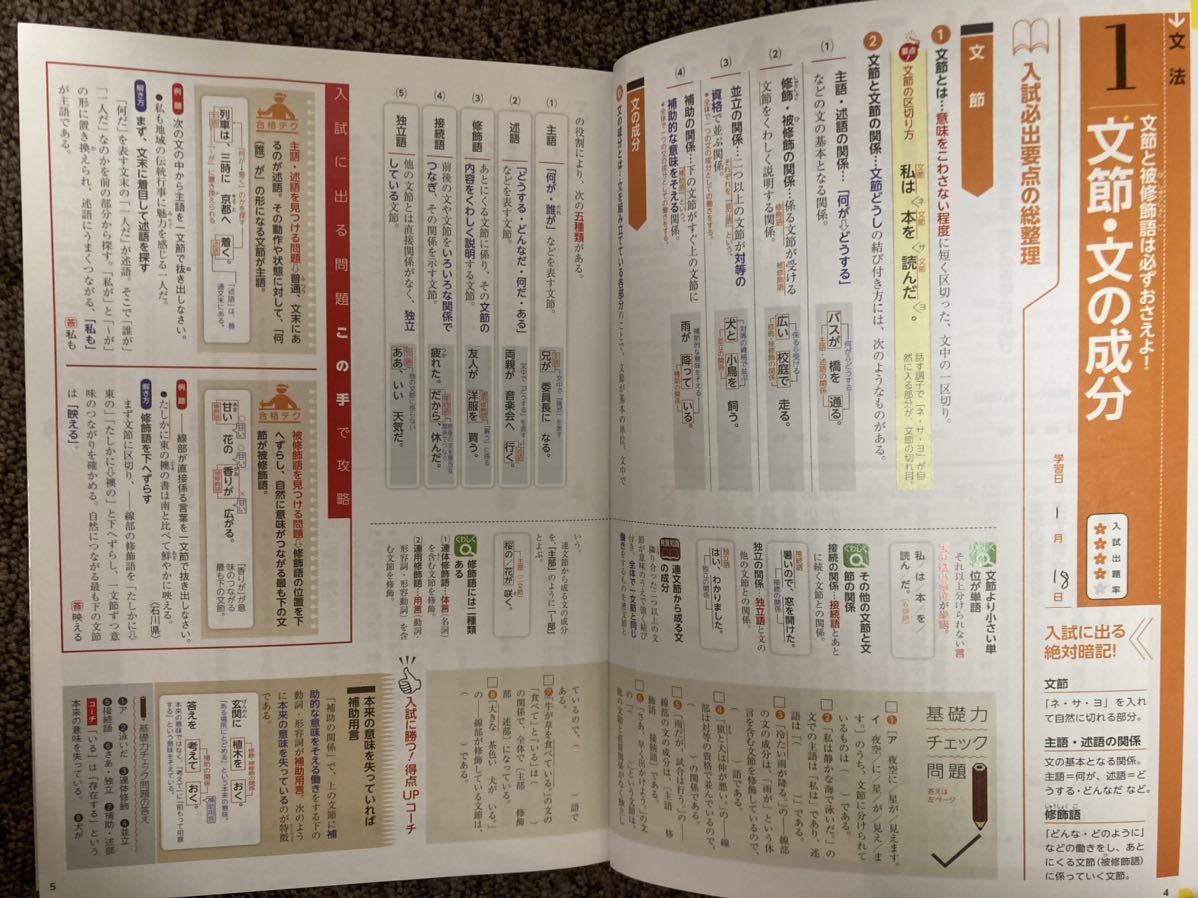 文法
1
文節と被修飾語は必ずおさえよ!
文節・文の成分
学習日 1月18日
入試出題率
入試必出要点の総整理
文節
1 文節とは…意味をこわさない程度に短く区切った、文中の一区切り。
要点
文節の区切り方
私は 本を 読んだ。
文節 ネ 文節 サ 文節 ヨ
話す調子で「ネ・サ・ヨ」が自
然に入る部分が、文節の切れ目。
2 文節と文節の関係…文節どうしの結び付き方には、次のようなものがある。
(1) 主語・述語の関係…「何が⇨どうする」
などの文の基本となる関係。
何が⇨どうする
バスが 橋を 通る。
主語・述語の関係
(2) 修飾・被修飾の関係…係る文節が受ける
文節をくわしく説明する関係。
係る⇨受ける
広い 校庭で 走る。
修飾・被修飾の関係
(3) 並立の関係…二つ以上の文節が対等の
資格で並ぶ関係。
対等の資格で並ぶ
犬と 小鳥を 飼う。
並立の関係
(4) 補助の関係…下の文節がすぐ上の文節に
補助的な意味をそえる関係。
補助的な意味をそえる
雨が 降って いる。
補助の関係
文の成分
文の成分とは…文を組み立てている各部分のことで、文節が基本の単位。文中で
文節より小さい単
位が単語
それ以上分けられない言
葉の最小単位が単語。
私/は/本/を/
読ん/だ。
くわしく
その他の文節と文
節の関係
接続の関係…接続語とあと
に続く文節との関係。
暑いので、窓を開けた。
独立の関係…独立語と文の
文節との関係。
はい、わかりました。
独立の関係
連文節から成る文
の成分
隣り合った二つ以上の文
節が意味のうえで強く結び
付き、全体で一文節と同じ
働きをするものを連文節と
入試に出る
絶対暗記!
文節
「ネ・サ・ヨ」を入れ
て自然に切れる部分。
主語・述語の関係
文の基本となる関係。
主語=何が、述語=ど
うする・どんなだ など。
修飾語
「どんな・どのように」
などの働きをし、あと
にくる文節(被修飾語)
に係っていく文節。
基礎力
チェック
問題
答えは
左ページ
1 「ア 夜空に/星が/見えます。
イ 夜空/に/星/が/見え/ま
す」のうち、文節に分けられて
いるものは( )である。
2 「私は静かな海で泳いだ。」の
文での主語は「私は」であり、述
語は「( )」である。
3 「冷たい雨が降る。」の——線部
の文の成分は、「雨が」という体
言を含む文節を修飾しているので、
( )語である。
4 「猿と犬は仲が悪い。」の——線
部は対等の資格で並んでいるので、
( )の関係である。
5 「雨だが、試合は行う。」の——
線部の文の成分は、〔主語 修
飾語 接続語〕である。
6 「さあ、早く出かけよう。」の文
4
の役割により、次の五種類がある。
(1) 主語…「何が・誰が」などを表す文節。
兄が 委員長に なる。
(2) 述語…「どうする・どんなだ・何だ・ある」
などを表す文節。
両親が 音楽会へ 行く。
(3) 修飾語…あとにくる文節に係り、その文節の
内容をくわしく説明する文節。
友人が 洋服を 買う。
(4) 接続語…前後の文や文節をいろいろな関係で
つなぎ、その関係を示す文節。
疲れた。だから、休んだ。
(5) 独立語…他の文節とは直接関係がなく、独立
している文節。
ああ、いい 天気だ。
いう。
連文節から成る文の成分
を、「主部」のように「〜部」
とよぶ。
桜の/花が 咲く。
くわしく
修飾語には二種類
ある
①連体修飾語…体言(名詞)
を含む文節を修飾。
②連用修飾語…用言(動詞・
形容詞・形容動詞)を含
む文節を修飾。
入試に出る問題この手で攻略
合格テク
主語・述語を見つける問題⇨普通、文末にあ
るのが述語。その動作や状態に対して、「何
(誰)が」の形になる文節が主語。
列車は、三時に 京都へ 着く。
「述語」は、普
通文末にある。
例題 次の文の中から主語を一文節で抜き出しなさい。
●私も地域の伝統行事に魅力を感じる一人だ。
解き方 まず、文末に着目して述語を探す
「何だ」を表す文末の「一人だ」が述語。そこで「誰が」
「一人だ」なのかを前の部分から探す。「私が」と「〜が」
の形に置き換えられ、述語にうまくつながる、「私も」
が主語である。
答 私も
合格テク
被修飾語を見つける問題⇨修飾語の位置を下
へずらし、自然に意味がつながる最も下の文
節が被修飾語。
甘い 花の 香りが 広がる。
修飾語 被修飾語
「香りが」が意
味のつながる
最も下の文節。
例題 ——線部が直接係る言葉を一文節で抜き出しなさい。
●たしかに東の襖の書は南と比べて鮮やかに映える。
(石川県)
解き方 修飾語を下へずらす
まず文節に区切り、——線部の修飾語を「たしかに⇨
東の」「たしかに⇨襖の」と下へずらし、一文節ずつ意
味のつながりを確かめる。自然につながる最も下の文節
は「映える」。
答 映える
( )語で
ある。
7 「牛が草を食べている。」の文の
「食べて」と「いる」は( )
の関係で、全体で〔主部 述
部〕になっている。
8 「大きな 茶色い 犬が いる。」
の——線部が修飾している文節は、
( )である。
入試に勝つ!得点UPコーチ
本来の意味を失っていれば
補助用言
「補助の関係」で、上の文節に補
助的な意味をそえる働きをする下の
動詞・形容詞が補助用言。次のよう
に本来の意味を失っているのが特徴
である。
玄関に 植木を おく。
「ある場所にとどめる」という本来の意味。
答えを 考えて おく。
補助の関係
補助用言
本来の意味ではなく、「考えて」に「前もって用意
する」という意味をそえている。
基礎力チェック問題の答え
1ア 2泳いだ 3連体修飾 4並立
5接続語 6さあ・独立 7補助・述部
8犬が
コーチ
「いる」は「存在する」という
本来の意味を失っている。
5